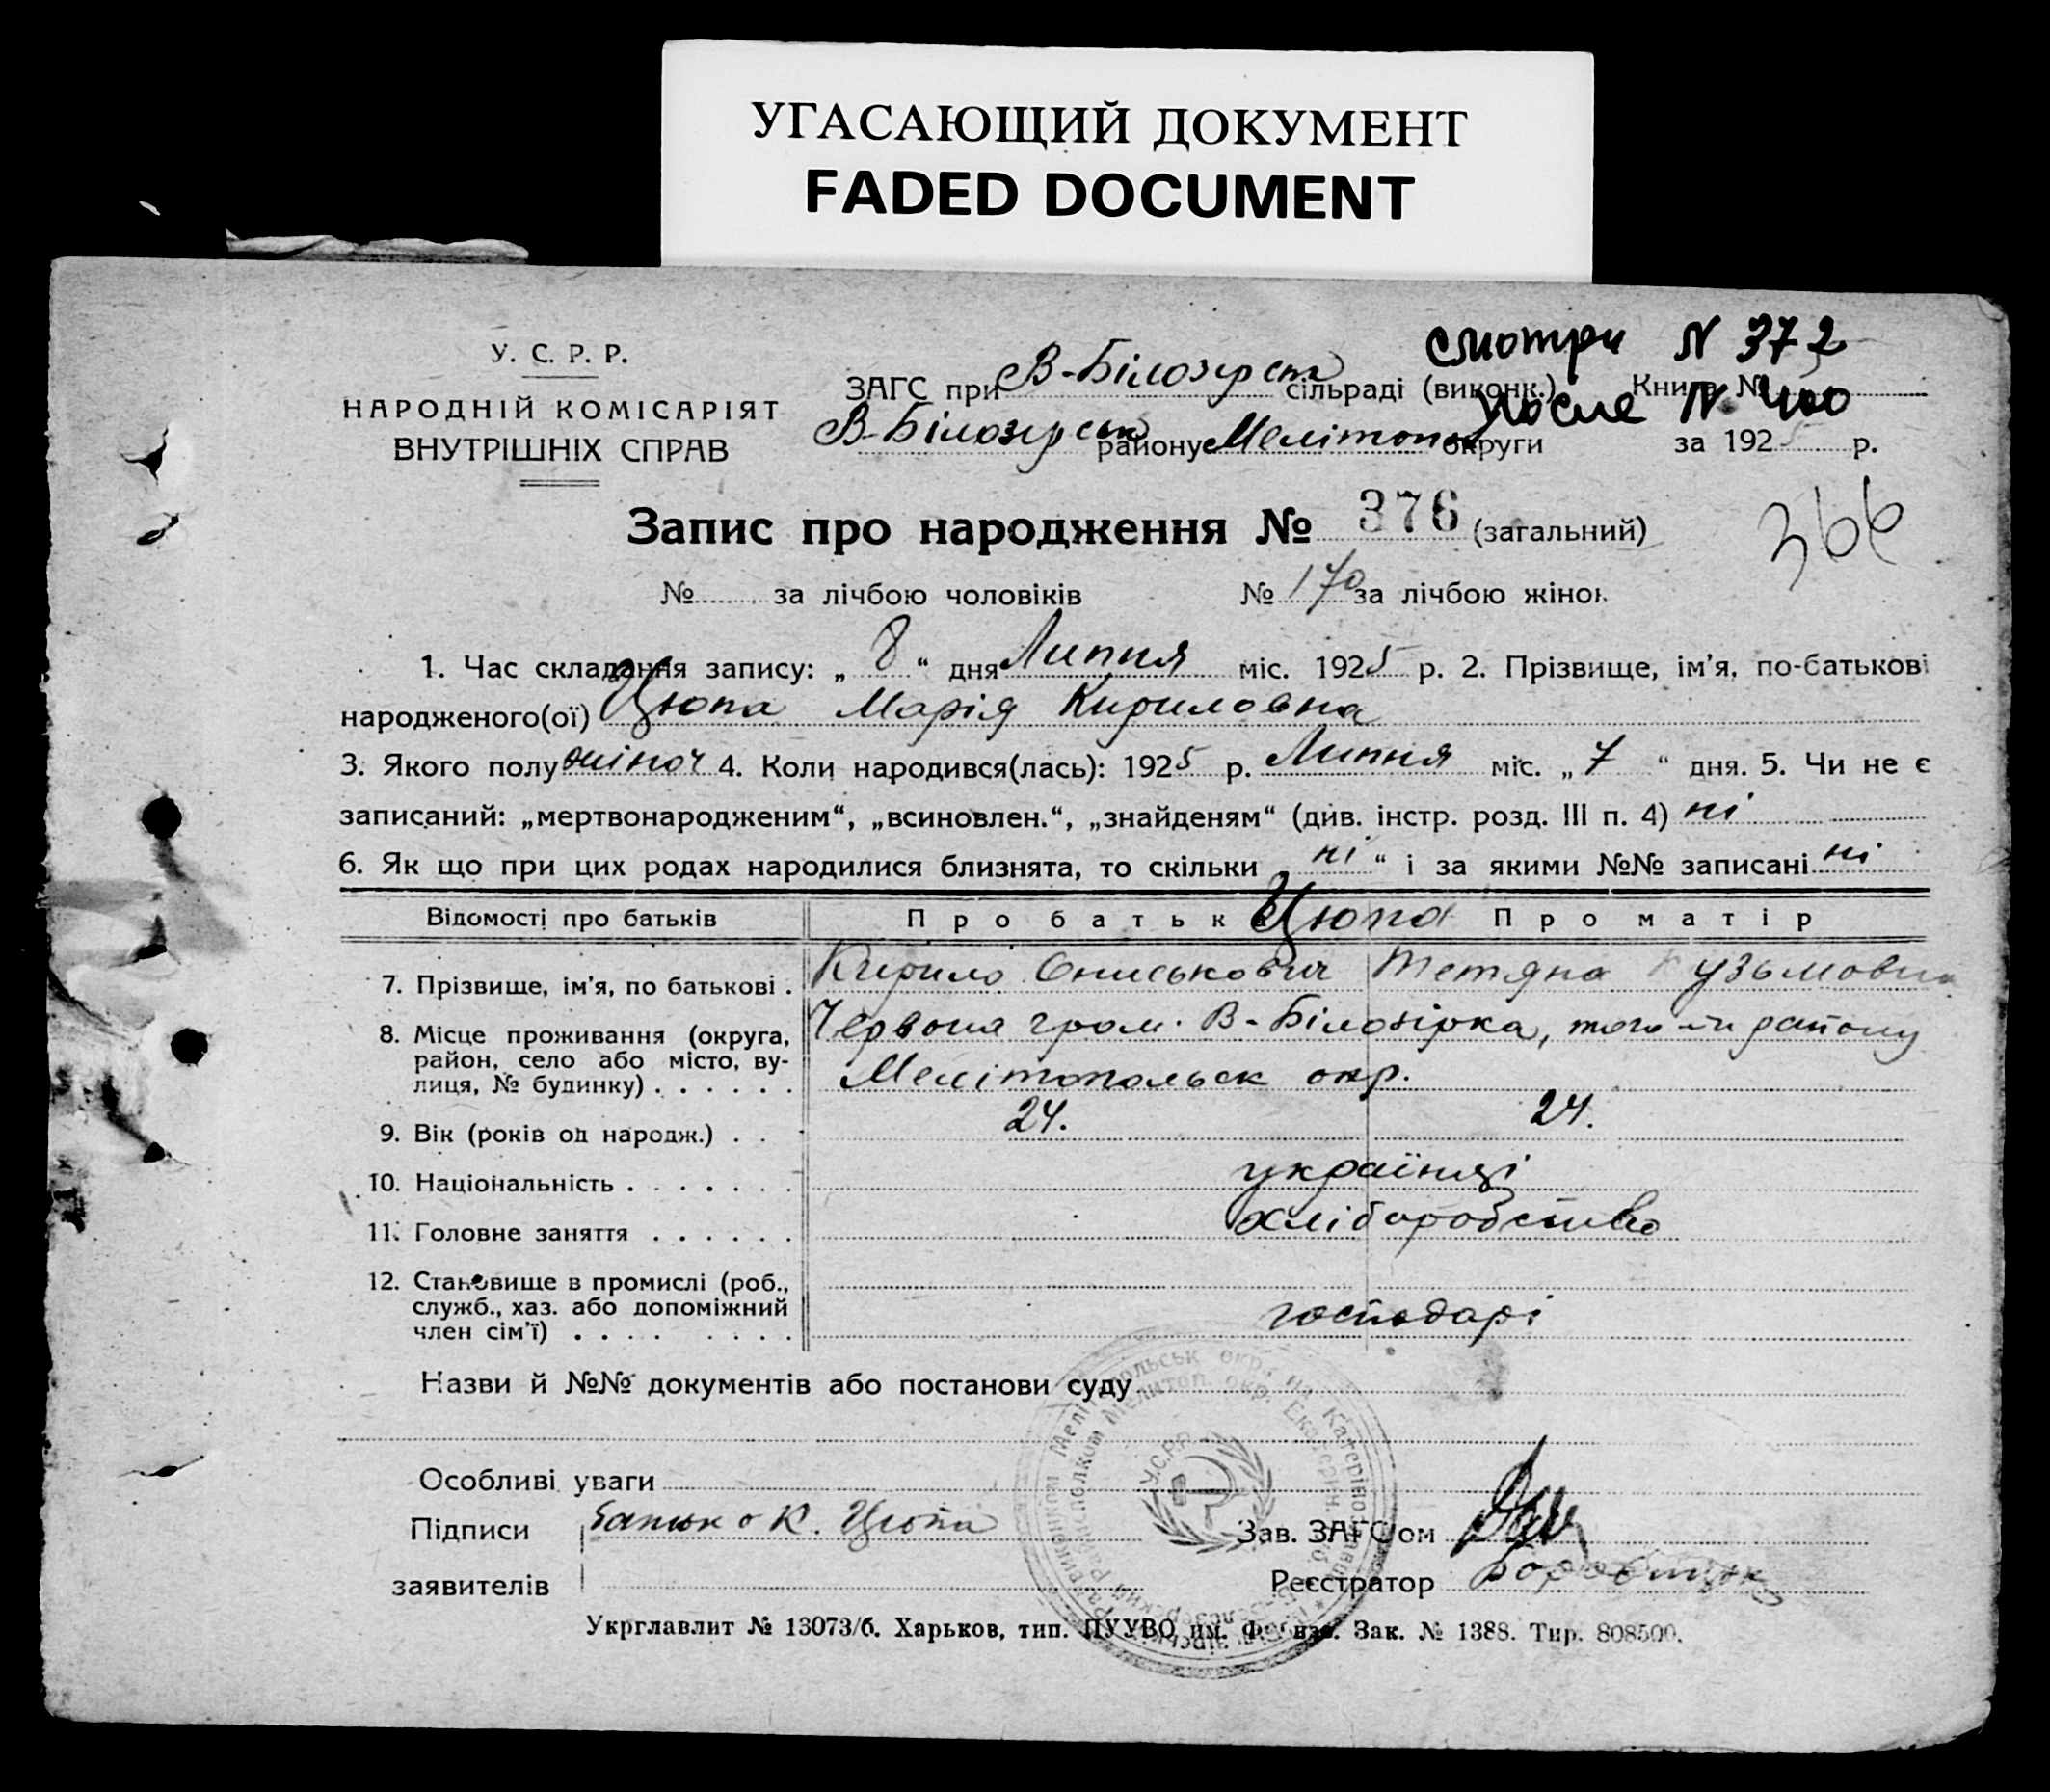 УГАСАЮЩИЙ ДОКУМЕНТ
FADED DOCUMENT
У. С. Р. Р.
НАРОДНІЙ КОМІСАРІЯТ
ВНУТРІШНІХ СПРАВ
смотри N 372
ЗАГС при В-Білозерск сільраді (виконк.) Книга №
после N 400
В-Білозерськ району Мелітопол округи за 1925 р.
Запис про народження № 376 (загальний)
366
№ за лічбою чоловіків № 170 за лічбою жінок
1. Час складання запису: „ 8 “ дня Липня міс. 1925 р. 2. Прізвище, ім’я, по-батькові
народженого(ої) Цюпа Марія Кириловна
3. Якого полу жіноч 4. Коли народився(лась): 1925 р. Липня міс. „ 7 “ дня. 5. Чи не є
записаний: „мертвонародженим“, „всиновлен.“, „знайденям“ (див. інстр. розд. III п. 4) ні
6. Як що при цих родах народилися близнята, то скільки „ ні “ і за якими №№ записані ні
Відомості про батьків Про батька Цюпа Про матір
7. Прізвище, ім’я, по батькові . Кирило Ониськович Тетяна Кузьмовна
8. Місце проживання (округа, Червона гром. В-Білозірка, того ж району
район, село або місто, ву-
лиця, № будинку) . . . . . . Мелітопольськ окр.
9. Вік (років од народж.) . . . 24. 24.
10. Національність . . . . . . . українці
11. Головне заняття . . . . . . хліборобство
12. Становище в промислі (роб.,
служб., хаз. або допоміжний
член сім’ї) . . . . . . . . господарі
Назви й №№ документів або постанови суду
Особливі уваги
Підписи батько К. Цюпа Зав. ЗАГС’ом
заявителів Реєстратор
Укрглавлит № 13073/б. Харьков, тип. ПУУВО им. Фрунзе. Зак. № 1388. Тир. 808500.
У.С.Р.Р.